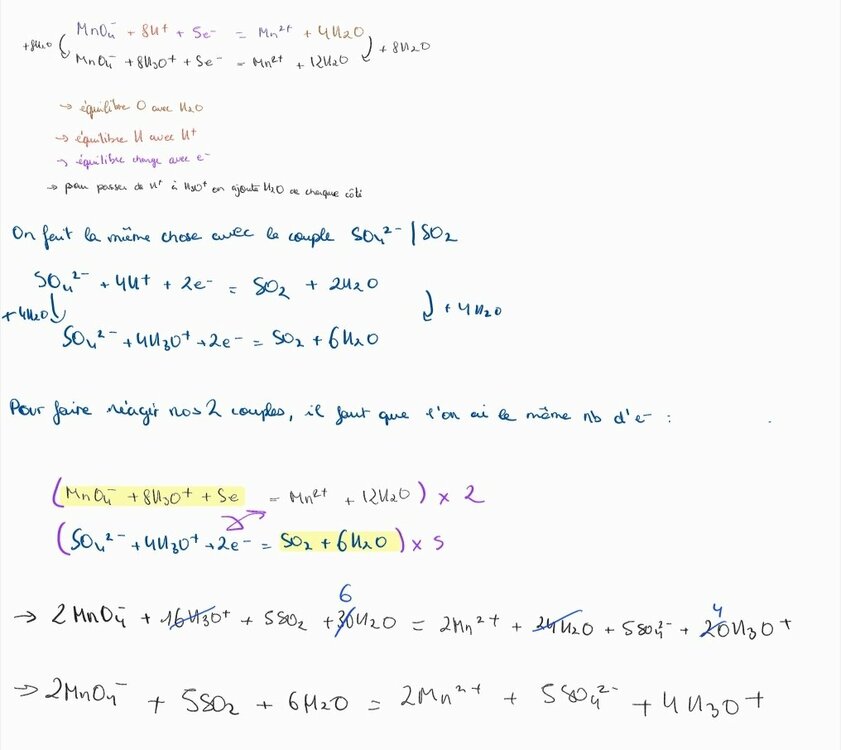 MnO₄⁻ + 8H⁺ + 5e⁻ = Mn²⁺ + 4H₂O
+8H₂O ( MnO₄⁻ + 8H₃O⁺ + 5e⁻ = Mn²⁺ + 12H₂O ) + 8H₂O
→ équilibre O avec H₂O
→ équilibre H avec H⁺
→ équilibre charge avec e⁻
→ pour passer de H⁺ à H₃O⁺ on ajoute H₂O de chaque côté
On fait la même chose avec le couple SO₄²⁻ | SO₂
SO₄²⁻ + 4H⁺ + 2e⁻ = SO₂ + 2H₂O
+4H₂O ) + 4H₂O
SO₄²⁻ + 4H₃O⁺ + 2e⁻ = SO₂ + 6H₂O
Pour faire réagir nos 2 couples, il faut que l'on ai le même nb d'e⁻ :
(MnO₄⁻ + 8H₃O⁺ + 5e = Mn²⁺ + 12H₂O) × 2
(SO₄²⁻ + 4H₃O⁺ + 2e⁻ = SO₂ + 6H₂O) × 5
6 4
→ 2MnO₄⁻ + 16H₃O⁺ + 5SO₂ + 30H₂O = 2Mn²⁺ + 24H₂O + 5SO₄²⁻ + 20H₃O⁺
→ 2MnO₄⁻ + 5SO₂ + 6H₂O = 2Mn²⁺ + 5SO₄²⁻ + 4H₃O⁺